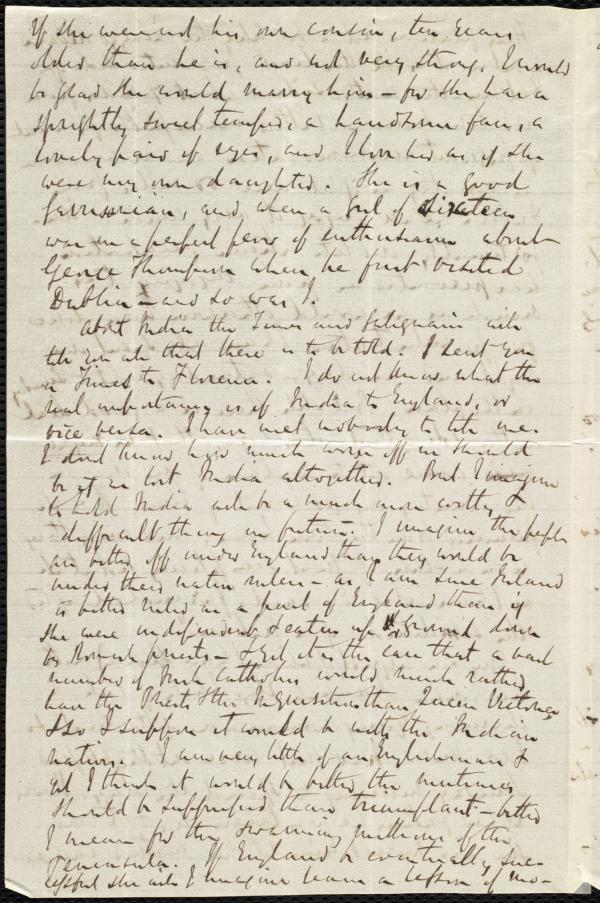 If she were not his own cousin, ten years
older than he is, and not very strong, I would
be glad she would marry him – for she has a
sprightly sweet temper, a handsome face, a
lovely pair of eyes, and I love her as if she
were my own daughter. She is a good
Garrisonian, and when a girl of sixteen
was in a perfect fever of enthusiasm about
George Thompson when he first visited
Dublin – and so was I.
About India the Times and Galignani will
tell you all that there is to be told. I sent you
a Times to Florence. I do not know what the
real importance is of India to England, or
vice versa. I have met nobody to tell me.
I don't know how much worse off we should
be if we lost India altogether. But I imagine
to hold India will be a much more costly &
difficult thing in future. I imagine the people
are better off under England than they would be
under their native rulers – as I am sure Ireland
is better ruled as a part of England than if
she were independent & eaten up & ground down
by Romish priests – & yet it is the case that a vast
number of Irish Catholics would much rather
have the Priests & the Inquisition than Queen Victoria,
& so I suppose it would be with the Indian
nations. I am very little of an Englishman &
yet I think it would be better the mutineers
should be suppressed than triumphant – better
I mean for the swarming millions of the
Peninsula. If England be eventually suc-
cessful she will I imagine learn a lesson of mo-